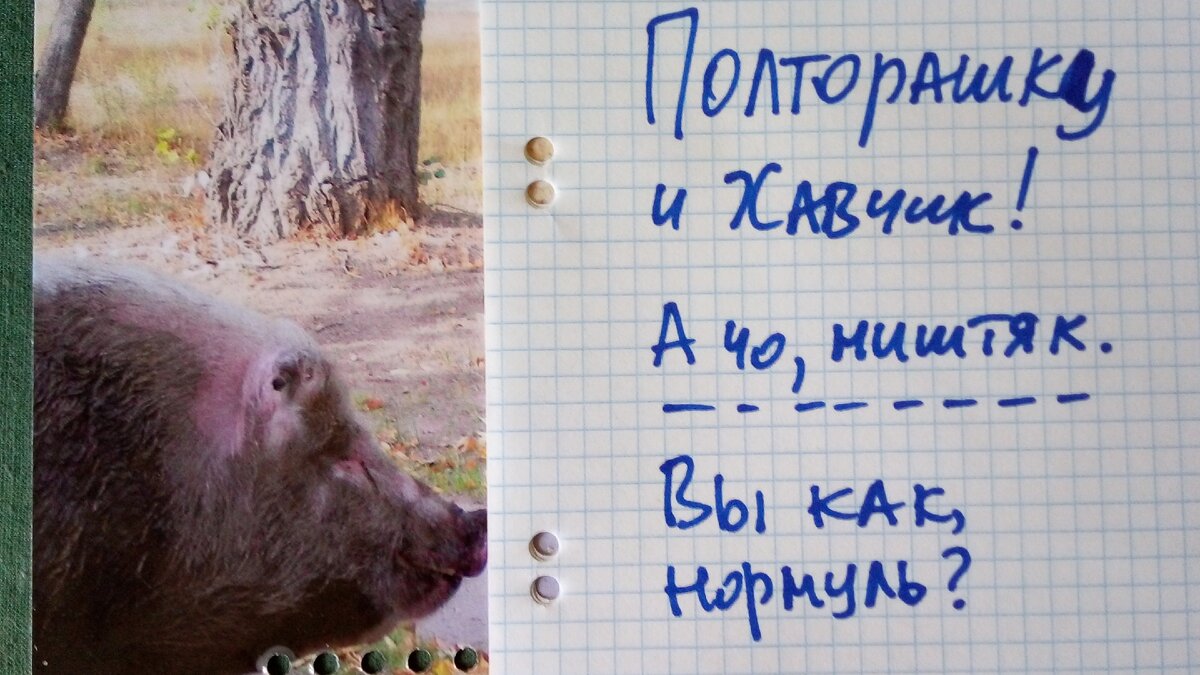 Полторашку
и Хавчик!
А чо, ништяк.
Вы как,
нормуль?